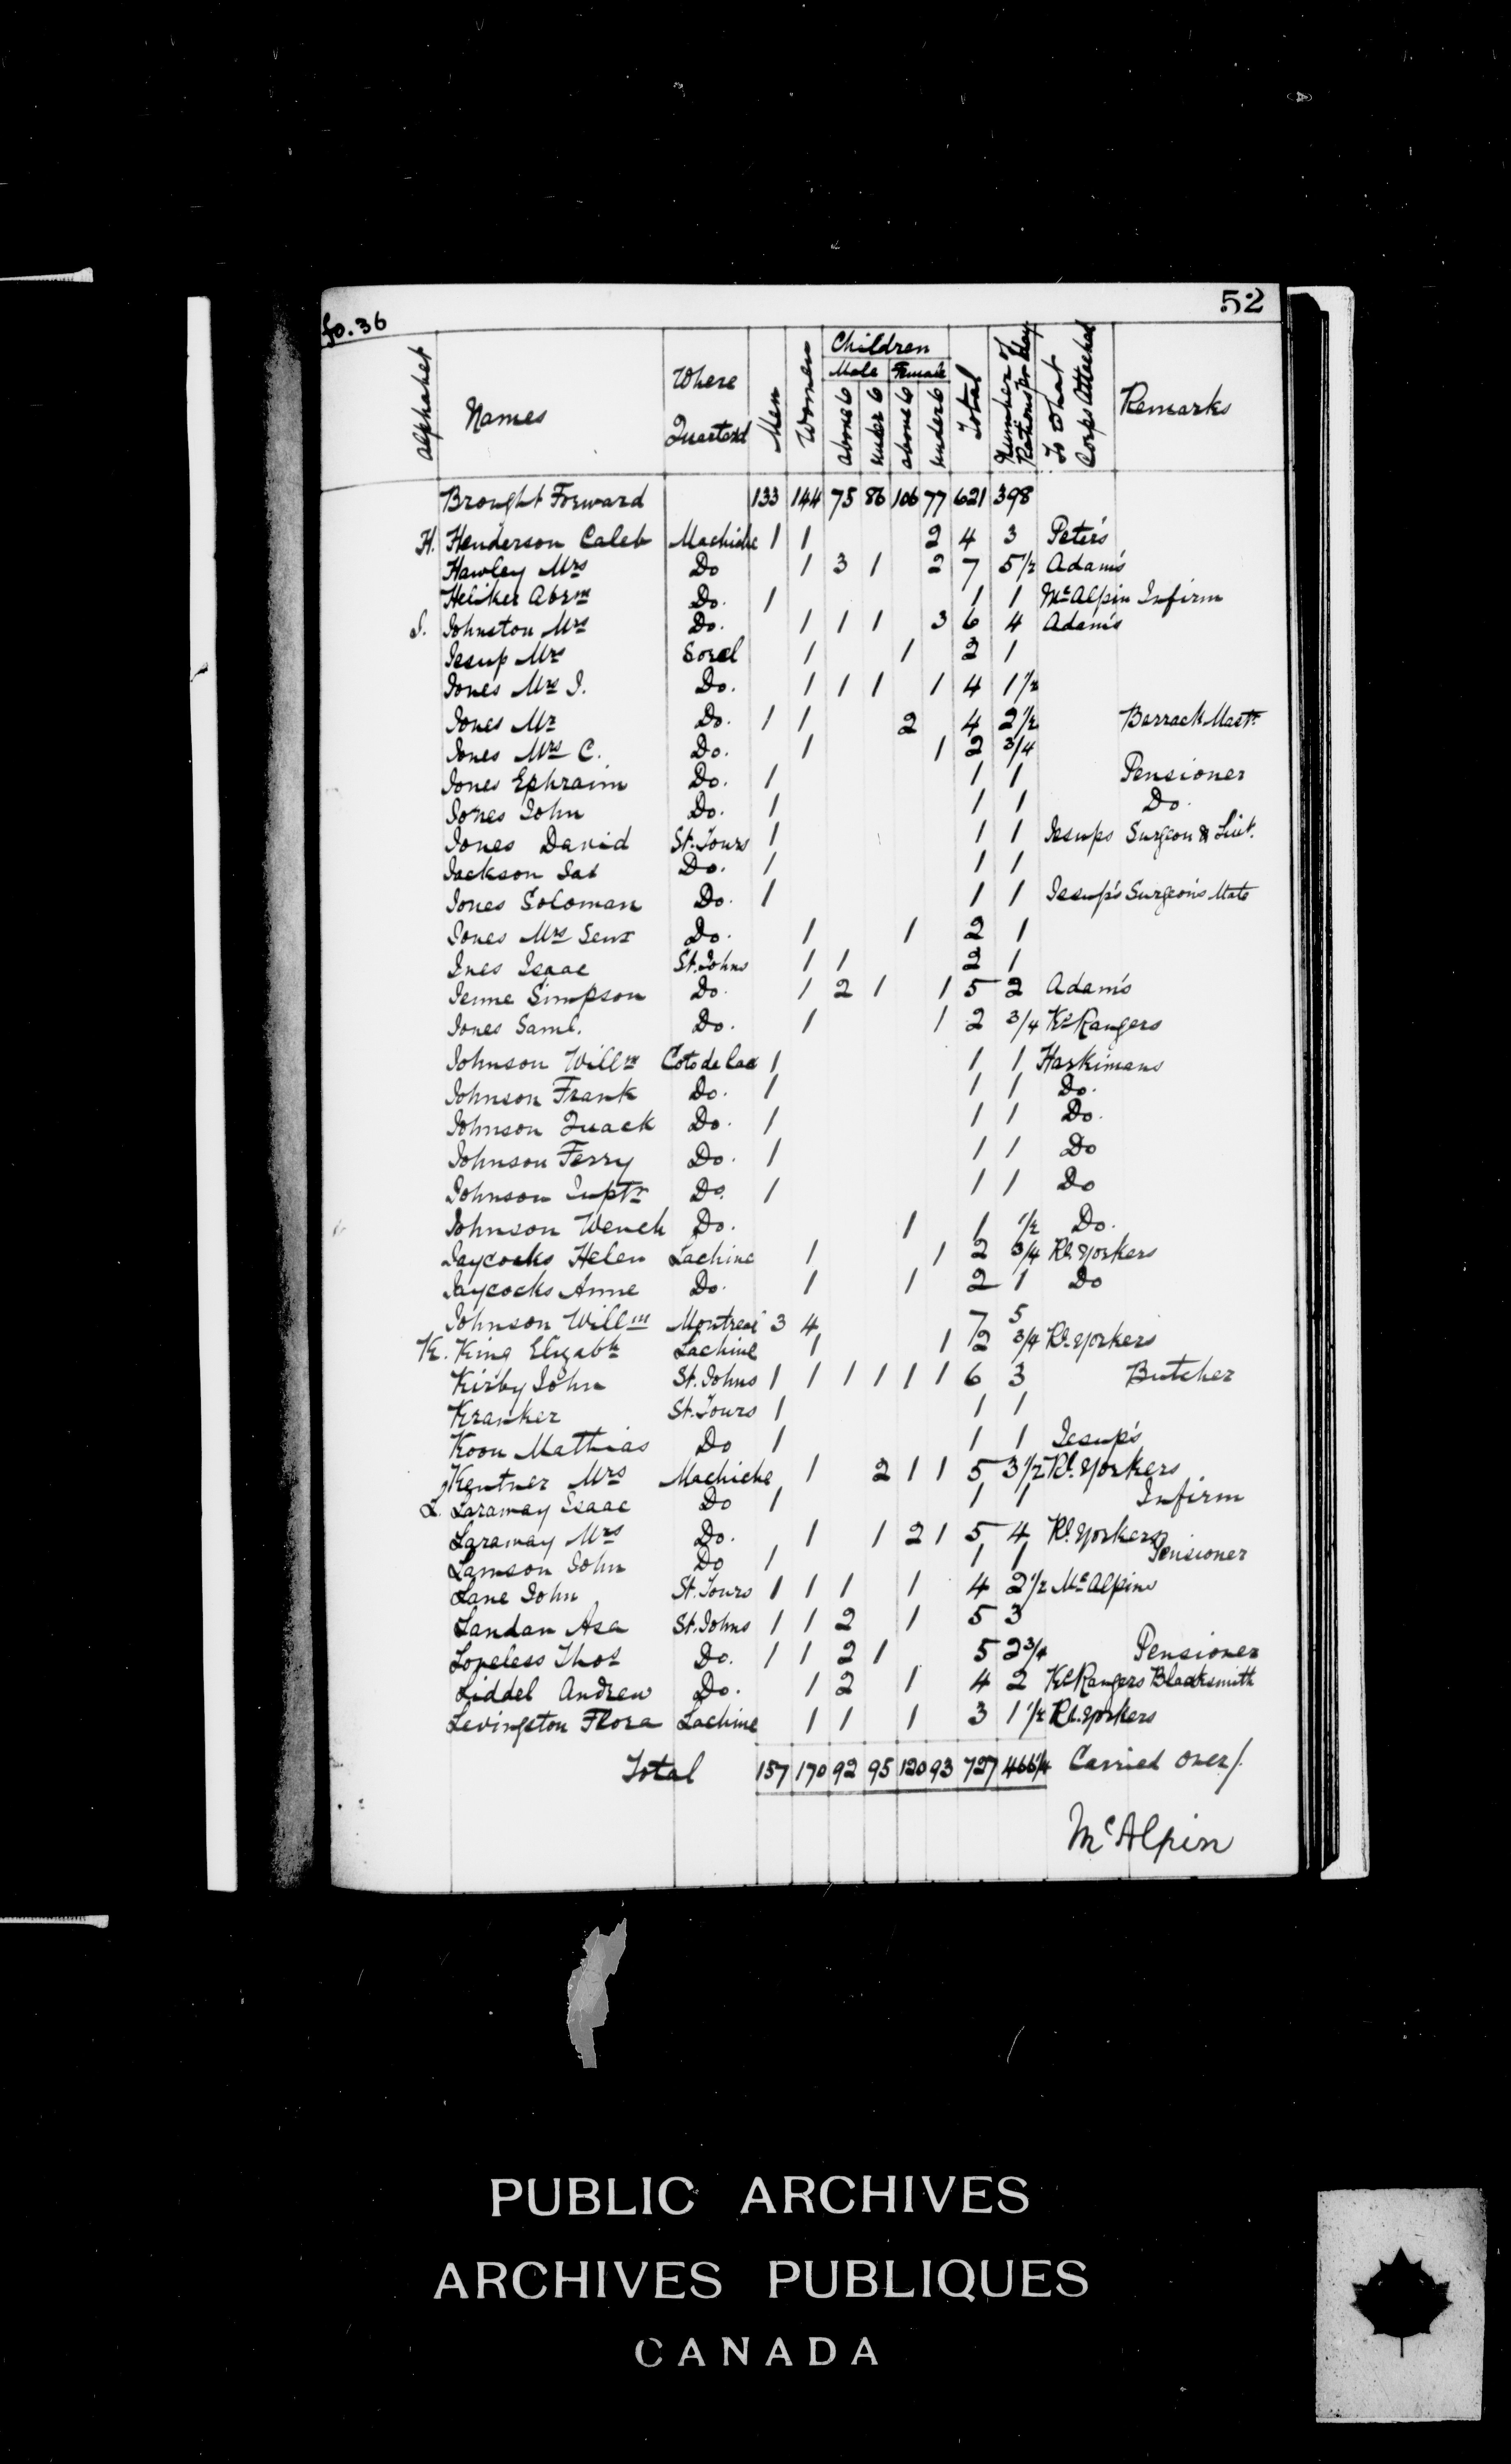 fo. 36
52
Alphabet Names Where Quarterd Men Women Children Male Female above 6 under 6 above 6 under 6 Total Number of Rations pr Day To What Corps Attached Remarks
Brought Forward 133 144 75 86 106 77 621 398
H. Henderson Caleb Machiche 1 1 2 4 3 Peter's
Hawley Mrs Do 1 3 1 2 7 5 1/2 Adam's
Heliker Abrm Do. 1 1 1 McAlpin Infirm
J. Johnston Mrs Do. 1 1 1 3 6 4 Adam's
Jesup Mrs Sorel 1 1 2 1
Jones Mrs J. Do. 1 1 1 1 4 1 1/2
Jones Mr Do. 1 1 2 4 2 1/2 Barrack Mastr
Jones Mrs C. Do. 1 1 2 3/4
Jones Ephraim Do. 1 1 1 Pensioner
Jones John Do. 1 1 1 Do.
Jones David St. Tours 1 1 1 Jesups Surgeon & Liut.
Jackson Jas Do. 1 1 1
Jones Soloman Do. 1 1 1 Jesup's Surgeon's Mate
Jones Mrs Senr Do. 1 1 2 1
Ines Isaac St. Johns 1 1 2 1
Jenne Simpson Do. 1 2 1 1 5 2 Adam's
Jones Saml. Do. 1 1 2 3/4 Ks Rangers
Johnson Willm Coto de Lac 1 1 1 Harkimans
Johnson Frank Do. 1 1 1 Do.
Johnson Quack Do. 1 1 1 Do.
Johnson Ferry Do. 1 1 1 Do
Johnson Do. 1 1 1 Do
Johnson Wench Do. 1 1 1/2 Do.
Jaycocks Helen Lachine 1 1 2 3/4 Rl. Yorkers
Jaycocks Anne Do. 1 1 2 1 Do
Johnson Willm Montreal 3 4 7 5
K. King Elizabth Lachine 1 1 2 3/4 Rl. Yorkers
Kirby John St. Johns 1 1 1 1 1 1 6 3 Butcher
Kranker St. Tours 1 1 1
Koon Mathias Do 1 1 1 Jesup's
Kentner Mrs Machiche 1 2 1 1 5 3 1/2 Rl. Yorkers
L. Laraway Isaac Do 1 1 1 Infirm
Laraway Mrs Do. 1 1 2 1 5 4 Rl. Yorkers
Lamson John Do 1 1 1 Pensioner
Lane John St. Tours 1 1 1 1 4 2 1/2 McAlpins
Landan Asa St. Johns 1 1 2 1 5 3
Loveless Thos Do. 1 1 2 1 5 2 3/4 Pensioner
Liddel Andrew Do. 1 2 1 4 2 Ks Rangers Blacksmith
Levingston Flora Lachine 1 1 1 3 1 1/2 Rl. Yorkers
Total 157 170 92 95 120 93 727 466 1/4 Carried over/.
McAlpin
PUBLIC ARCHIVES
ARCHIVES PUBLIQUES
CANADA